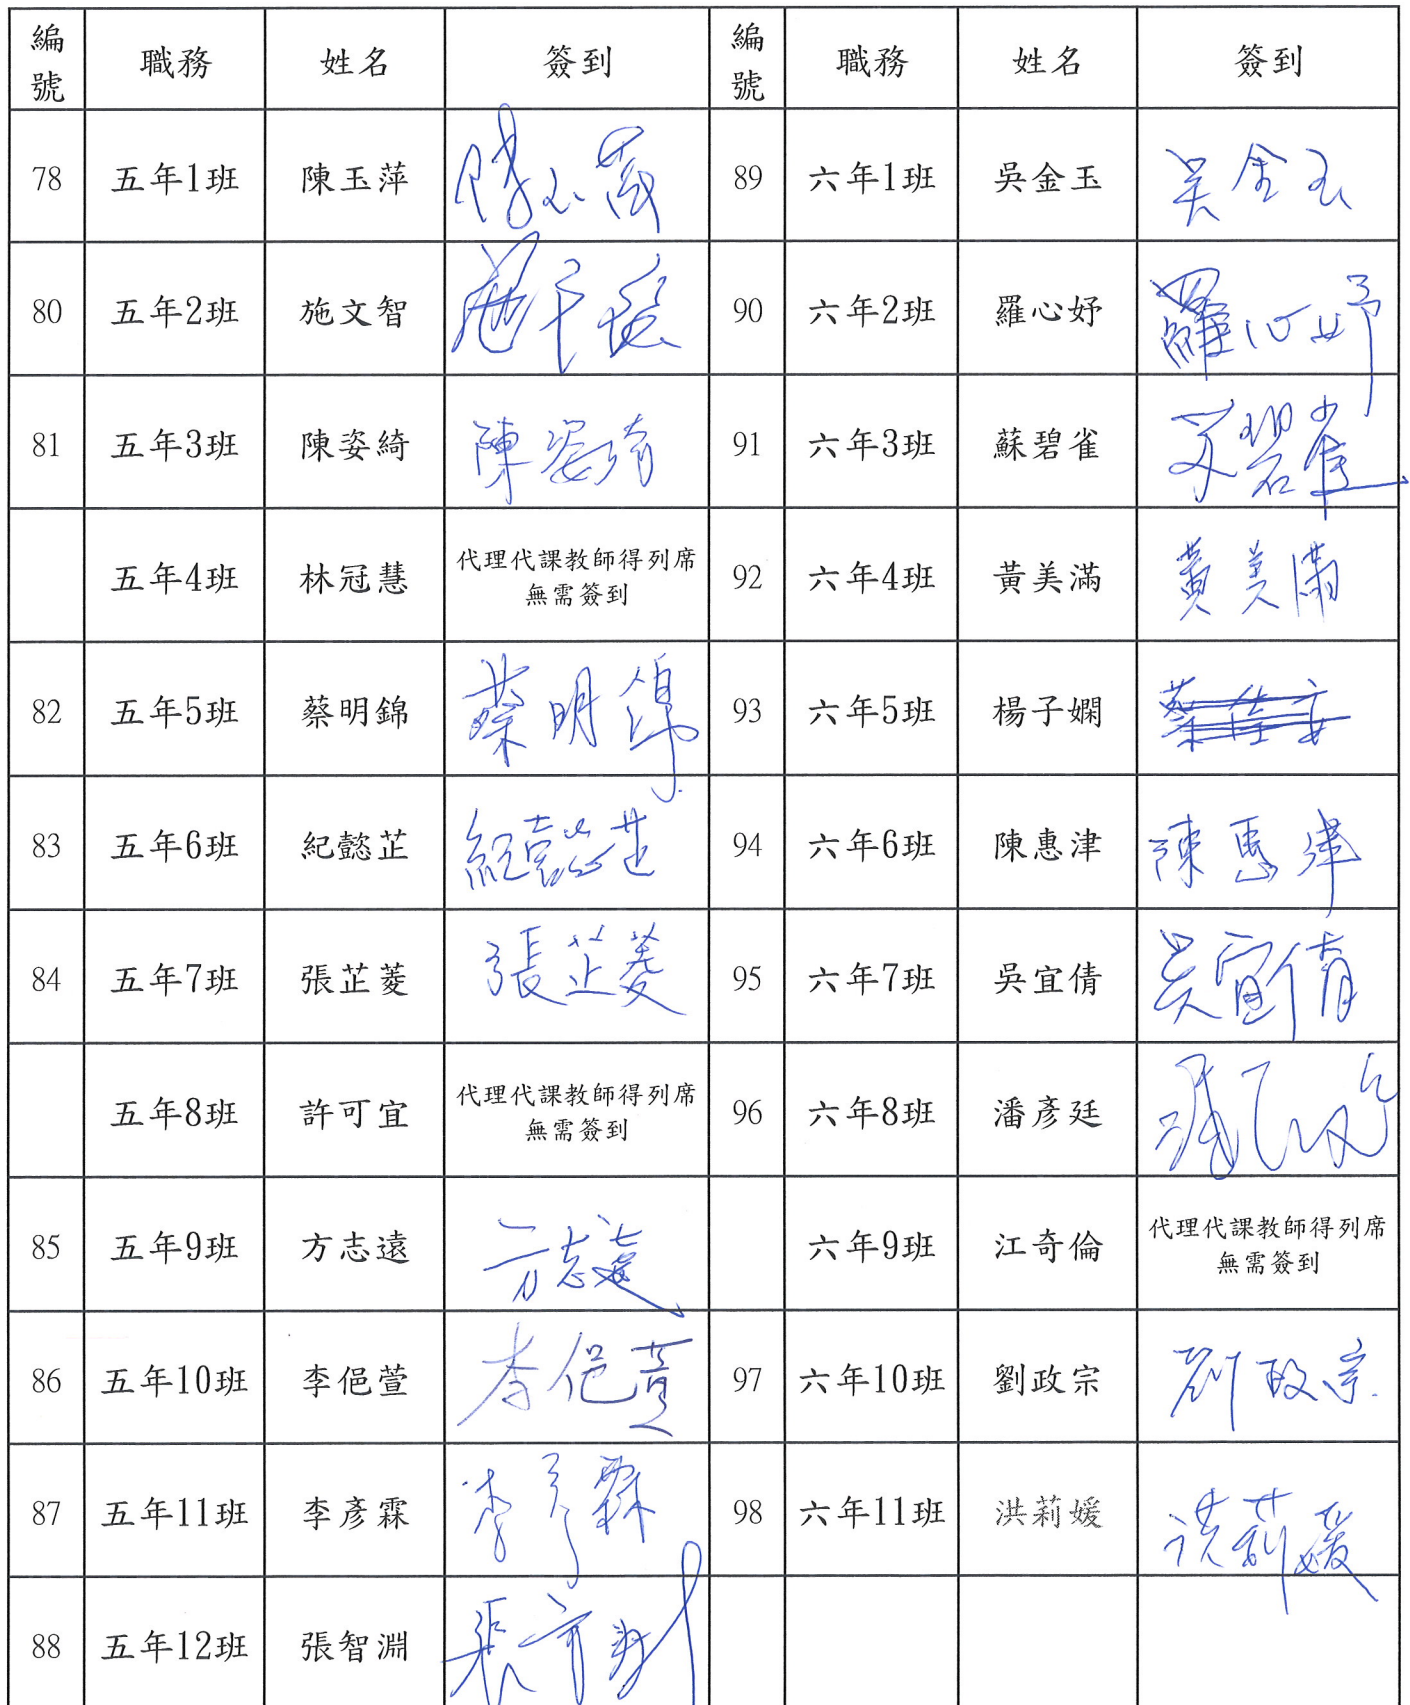 編號 職務 姓名 簽到 編號 職務 姓名 簽到
78 五年1班 陳玉萍 陳玉萍 89 六年1班 吳金玉 吳金玉
80 五年2班 施文智 施文智 90 六年2班 羅心妤 羅心妤
81 五年3班 陳姿綺 陳姿綺 91 六年3班 蘇碧雀 苏碧雀
五年4班 林冠慧 代理代課教師得列席 無需簽到 92 六年4班 黃美滿 黃美滿
82 五年5班 蔡明錦 蔡明錦 93 六年5班 楊子嫻
83 五年6班 紀懿芷 紀懿芷 94 六年6班 陳惠津 陳惠津
84 五年7班 張芷菱 張芷菱 95 六年7班 吳宜倩 吳宜倩
五年8班 許可宜 代理代課教師得列席 無需簽到 96 六年8班 潘彥廷 潘彥廷
85 五年9班 方志遠 方志遠 六年9班 江奇倫 代理代課教師得列席 無需簽到
86 五年10班 李俋萱 李俋萱 97 六年10班 劉政宗 劉政宗
87 五年11班 李彥霖 李彥霖 98 六年11班 洪莉媛 洪莉媛
88 五年12班 張智淵 張智淵